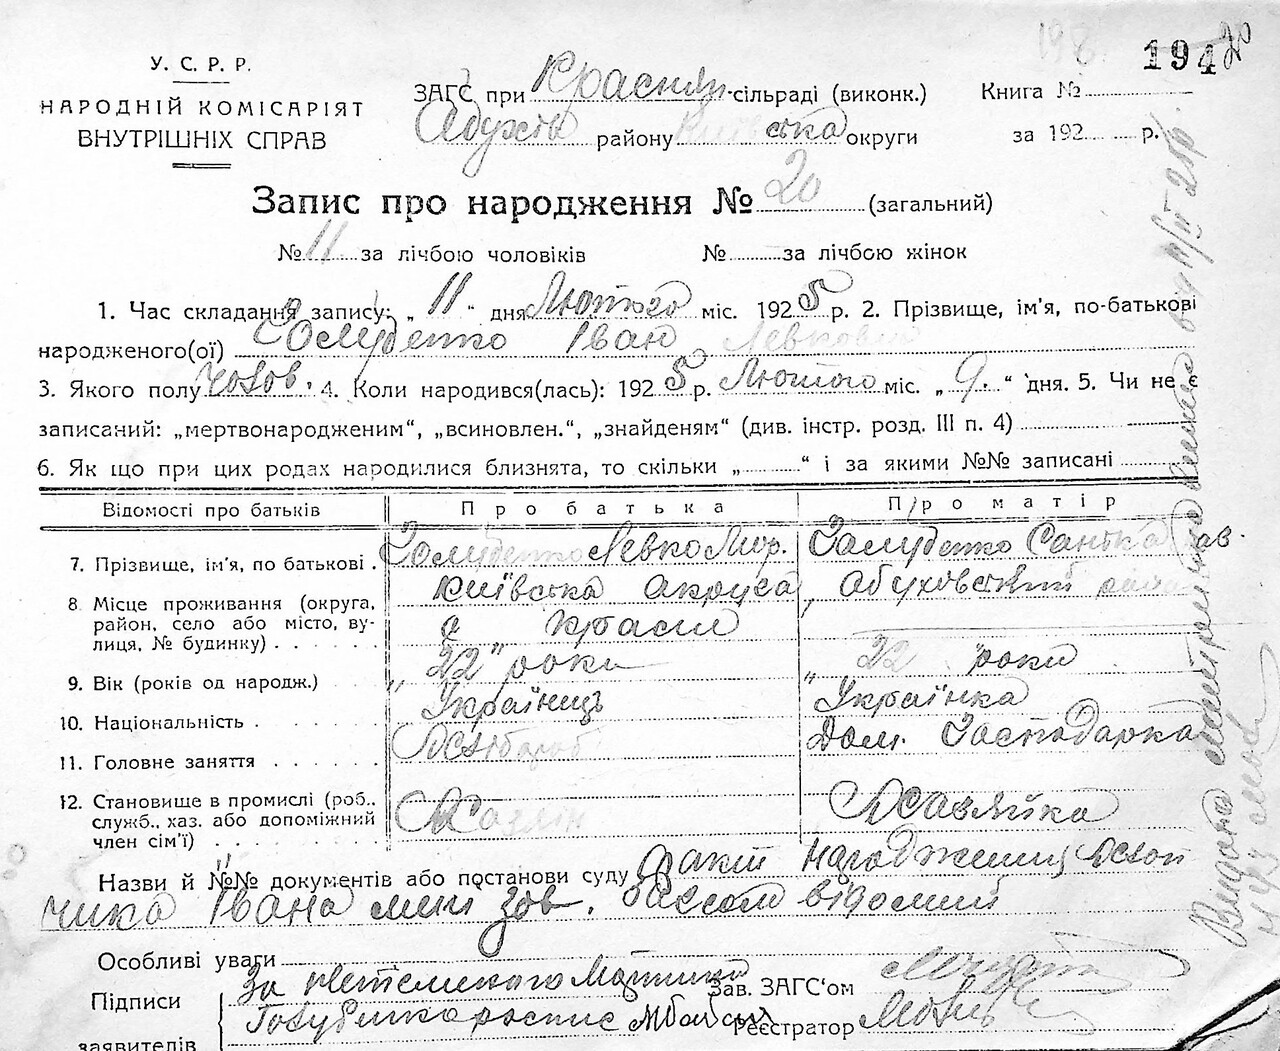 У. С. Р. Р.
НАРОДНІЙ КОМІСАРІЯТ
ВНУТРІШНІХ СПРАВ
194
ЗАГС при Красня-сільраді (виконк.)
району Київська округи
Книга №
за 192 р.
Запис про народження № 20 (загальний)
№ 11 за лічбою чоловіків № за лічбою жінок
1. Час складання запису: „ 11 " дня Лютого міс. 1925 р. 2. Прізвище, ім'я, по-батькові
народженого(ої) Голубенко Іван Левкович
3. Якого полу чолов. 4. Коли народився(лась): 1925 р. Лютого міс. „ 9. " дня. 5. Чи не є
записаний: „мертвонародженим", „всиновлен.", „знайденям" (див. інстр. розд. III п. 4)
6. Як що при цих родах народилися близнята, то скільки „ " і за якими №№ записані
Відомості про батьків Про батька Про матір
7. Прізвище, ім'я, по батькові . Голубенко Левко Голубенко
8 Місце проживання (округа, район, село або місто, вулиця, № будинку) Київська округа, Обуховський
с Красня
9. Вік (років од народж.) „ 22 " роки „ 22 роки
10. Національність Українець Українка
11. Головне заняття Хлібороб Дом. Господарка
12. Становище в промислі (роб., служб., хаз. або допоміжний член сім'ї) Хазяїн Хазяйка
Назви й №№ документів або постанови суду факт народження хлоп
чика Івана мин зов. відомий
Особливі уваги
Підписи За неписьмого
заявителів Голубенко роспис
Зав. ЗАГС'ом
Реєстратор
Видано